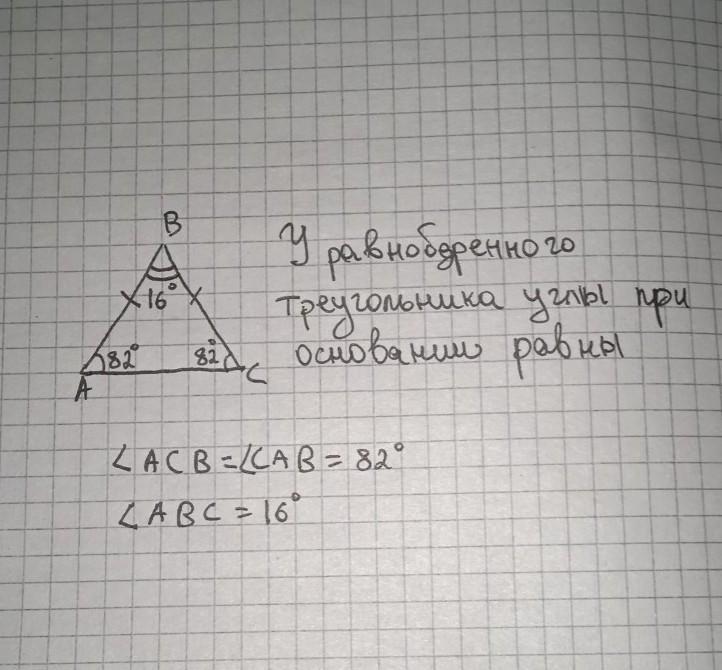 B
У равнобедренного
16°
треугольника углы при
82° 82°
основании равны
A C
∠ACB=∠CAB = 82°
∠ABC = 16°